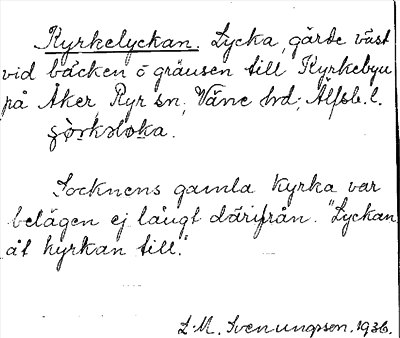 Kyrkelyckan. Lycka, gärde väst
vid bäcken o gränsen till Kyrkebyn
på Åker Ryr sn, Väne hd, Älfsb. l.
Socknens gamla Kyrka var
belägen ej långt därifrån. "Lyckan
åt kyrkan till."
L. M. Svenungsson. 1936.